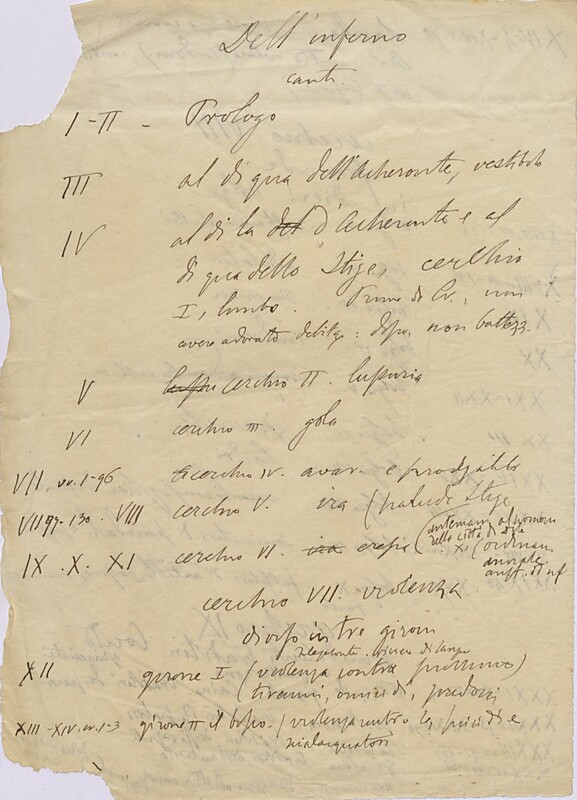 Dell'inferno
canti
I-II - Prologo
III al di qua dell'Acheronte, vestibolo
IV al di la del d'Acheronte e al
di qua dello Stige, cerchio
I, limbo. Prima di Cr., non
avere adorato debitge: dopo, non battezz.
V cerchio II. lussuria
VI cerchio III. gola
VII vv. 1-96 cerchio IV. avar. e prodigalità
VII 97-130. VIII cerchio V. ira (palude Stige
IX. X. XI cerchio VI. ira eresia (
della città di Dite
XI (ordinam.
cerchio VII. violenza
diviso in tre gironi
XII girone I (violenza contro prossimo)
tiranni, omicidi, predoni
XIII-XIV. vv. 1-3 girone II il bosco. (violenza contro se, suicidi e
scialacquatori